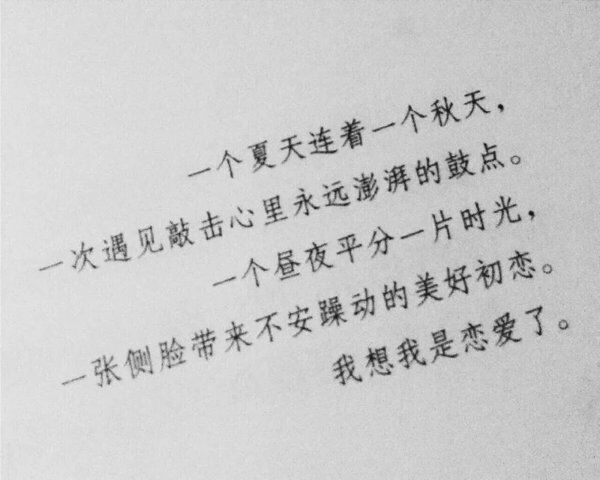 一个夏天连着一个秋天，
一次遇见敲击心里永远澎湃的鼓点。
一个昼夜平分一片时光，
一张侧脸带来不安躁动的美好初恋。
我想我是恋爱了。